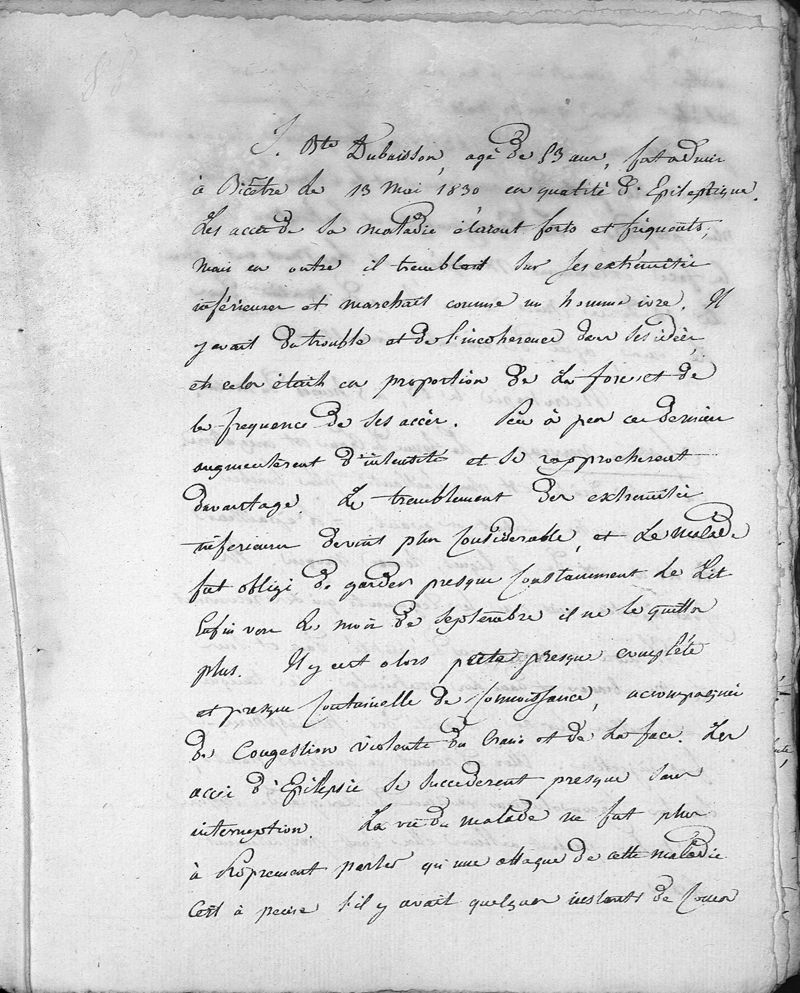 J. Bte Dubuisson, agé de 53 ans, fut admis
à Bicêtre le 13 Mai 1830 en qualité d'Epileptique.
Les accès de sa maladie étaient forts et fréquents;
mais en outre il tremblait sur ses extrémités
inférieures et marchait comme un homme ivre. Il
y avait du trouble et de l'incoherence dans ses idées,
et cela était en proportion de la force et de
la frequence de ses accès. Peu à peu ces derniers
augmentèrent d'intensité et se rapprochèrent
davantage. Le tremblement des extremités
inferieures devint plus considerable, et le malade
fut obligé de garder presque constamment le lit
Enfin vers le mois de septembre il ne le quitta
plus. Il y eut alors perte presque complète
et presque continuelle de connoissance, accompagnée
de congestion violente du crane et de la face. Les
accès d'Epilepsie se succederent presque sans
interruption. La vie du malade ne fut plus
à proprement parler qu'une attaque de cette maladie
C'est à peine s'il y avait quelques instants de